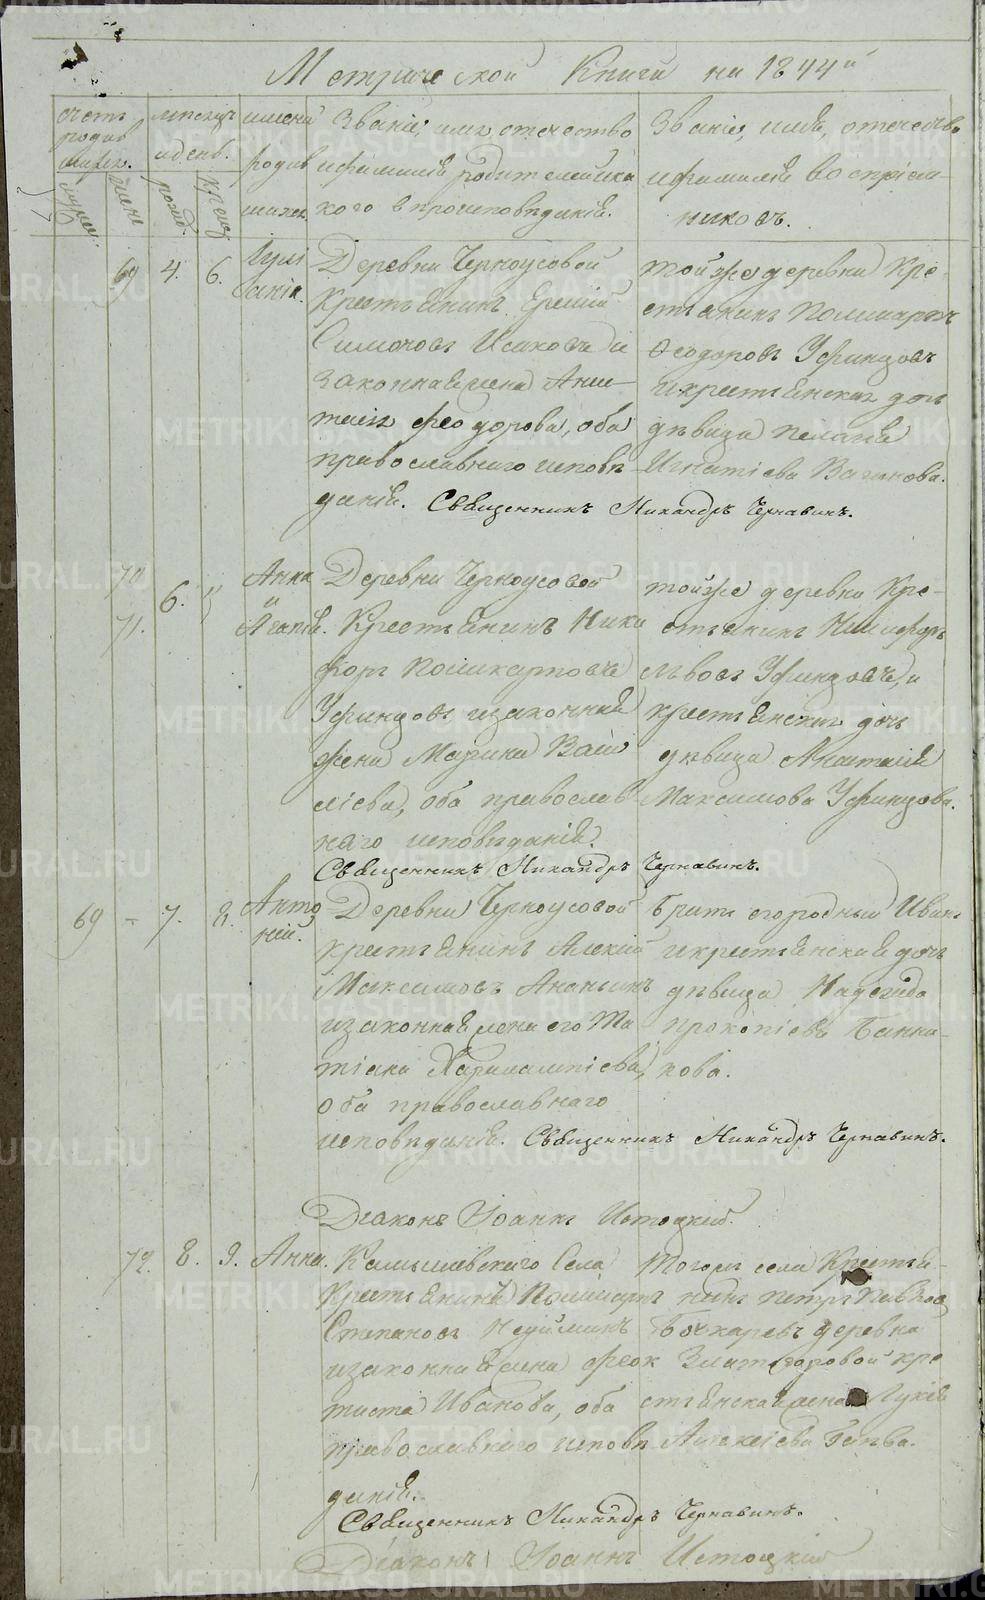 Метрической Книги на 1844й
счетъ родившихся.
мужск.
женс
месяцъ и день.
рожд.
крещ
имена родившихся
Званіе, имя, отечество
и фамилія родителей и ка
кого вѣроисповѣданія.
Званіе, имя, отечество
и фамилія воспріем
никовъ.
69 4. 6. Іулі
анія.
Деревни Черноусовой
Крестьянинъ
Симоновъ Исаковъ и
законная жена Анис
Феодорова, оба
православнаго исповѣ
данія. Священникъ Никандръ Чернавинъ.
той же деревни Кре
стьянинъ Поликарпъ
Феодоровъ Уфинцовъ
и крестьянская дочь
дѣвица Пелагія
Игнатіева Вагинова.
70 6. " Анна
71. и Агапія.
Деревни Черноусовой
Крестьянинъ Ники
форъ Поликарповъ
Уфинцовъ и законная
жена Марина Васи
ліева, оба православ
наго исповѣданія.
Священникъ Никандръ Чернавинъ.
той же деревни Кре-
стьянинъ Никифоръ
Львовъ Уфинцовъ, и
крестьянская дочь
дѣвица Анастасія
Максимова Уфинцова.
69 - 7. 8. Анто
ній.
Деревни Черноусовой
крестьянинъ Алексій
Максимовъ Ананьинъ
и законная жена его Та
тіана Харалампіева,
оба православнаго
исповѣданія. Священникъ Никандръ Чернавинъ.
братъ его родный Иванъ
и крестьянская дочь
дѣвица Надежда
Прокопіева Банни
кова.
Діаконъ Іоаннъ Истоцкій.
72. 8. 9. Анна.
Камышевскаго Села
Крестьянинъ Поликарпъ
Степановъ
и законная жена Феок
тиста Иванова, оба
православнаго исповѣ
данія.
Священникъ Никандръ Чернавинъ.
Того жъ села Крестья-
нинъ Петръ Павловъ
Бочкаревъ деревни
Златогоровой кре
стьянская жена Лукія
Алексіева
Діаконъ Іоаннъ Истоцкій
METRIKI.GASO-URAL.RU